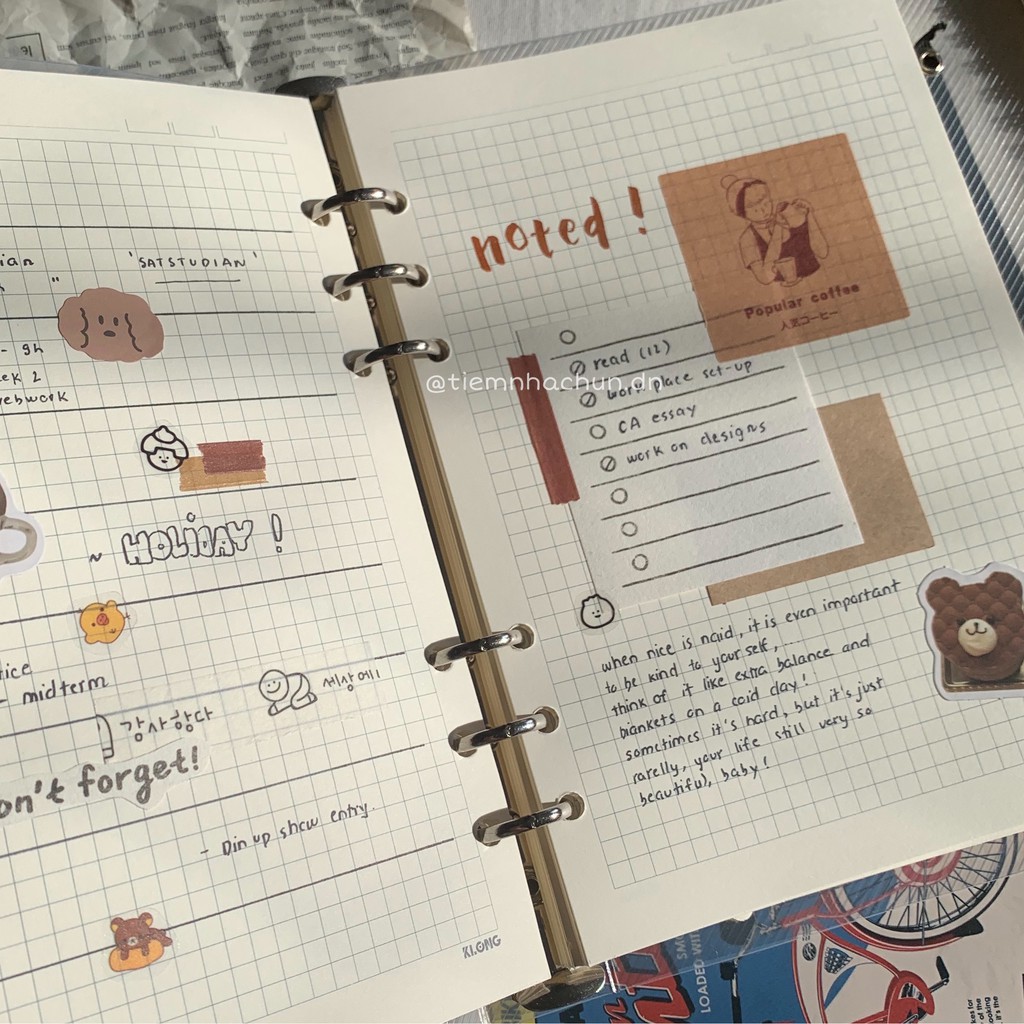 'SATSTUDIAN'
"
- gh
ek 2
webwork
~ HOLIDAY !
- midterm
세상에!
감사합다
on't forget!
- Din up show entry
KLONG
noted !
Popular coffee
人気コーヒー
read (12)
@tiemnhachun.dn
work place set-up
CA essay
work on designs
when nice is naid, it is even important
to be kind to your self,
think of it like extra balance and
blankets on a cold day!
sometimes it's hard, but it's just
rarelly, your life still very so
beautiful, baby!
LOADED WIT